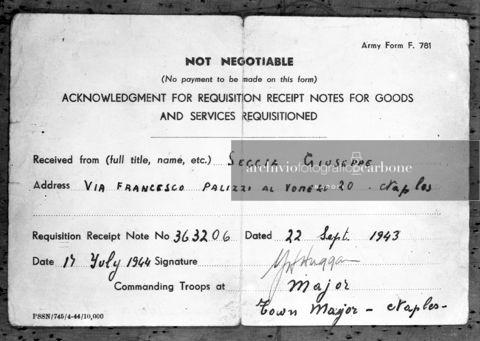 Army Form F. 781
NOT NEGOTIABLE
(No payment to be made on this form)
ACKNOWLEDGMENT FOR REQUISITION RECEIPT NOTES FOR GOODS
AND SERVICES REQUISITIONED
Received from (full title, name, etc.) SECCIA GIUSEPPE
archiviofotograficocarbone
Address VIA FRANCESCO PALIZZI AL VOMERO 20 - Naples
Requisition Receipt Note No 363206 Dated 22 Sept. 1943
Date 17 July 1944 Signature
Commanding Troops at Major
Town Major - Naples-
PSSN/745/4-44/10,000